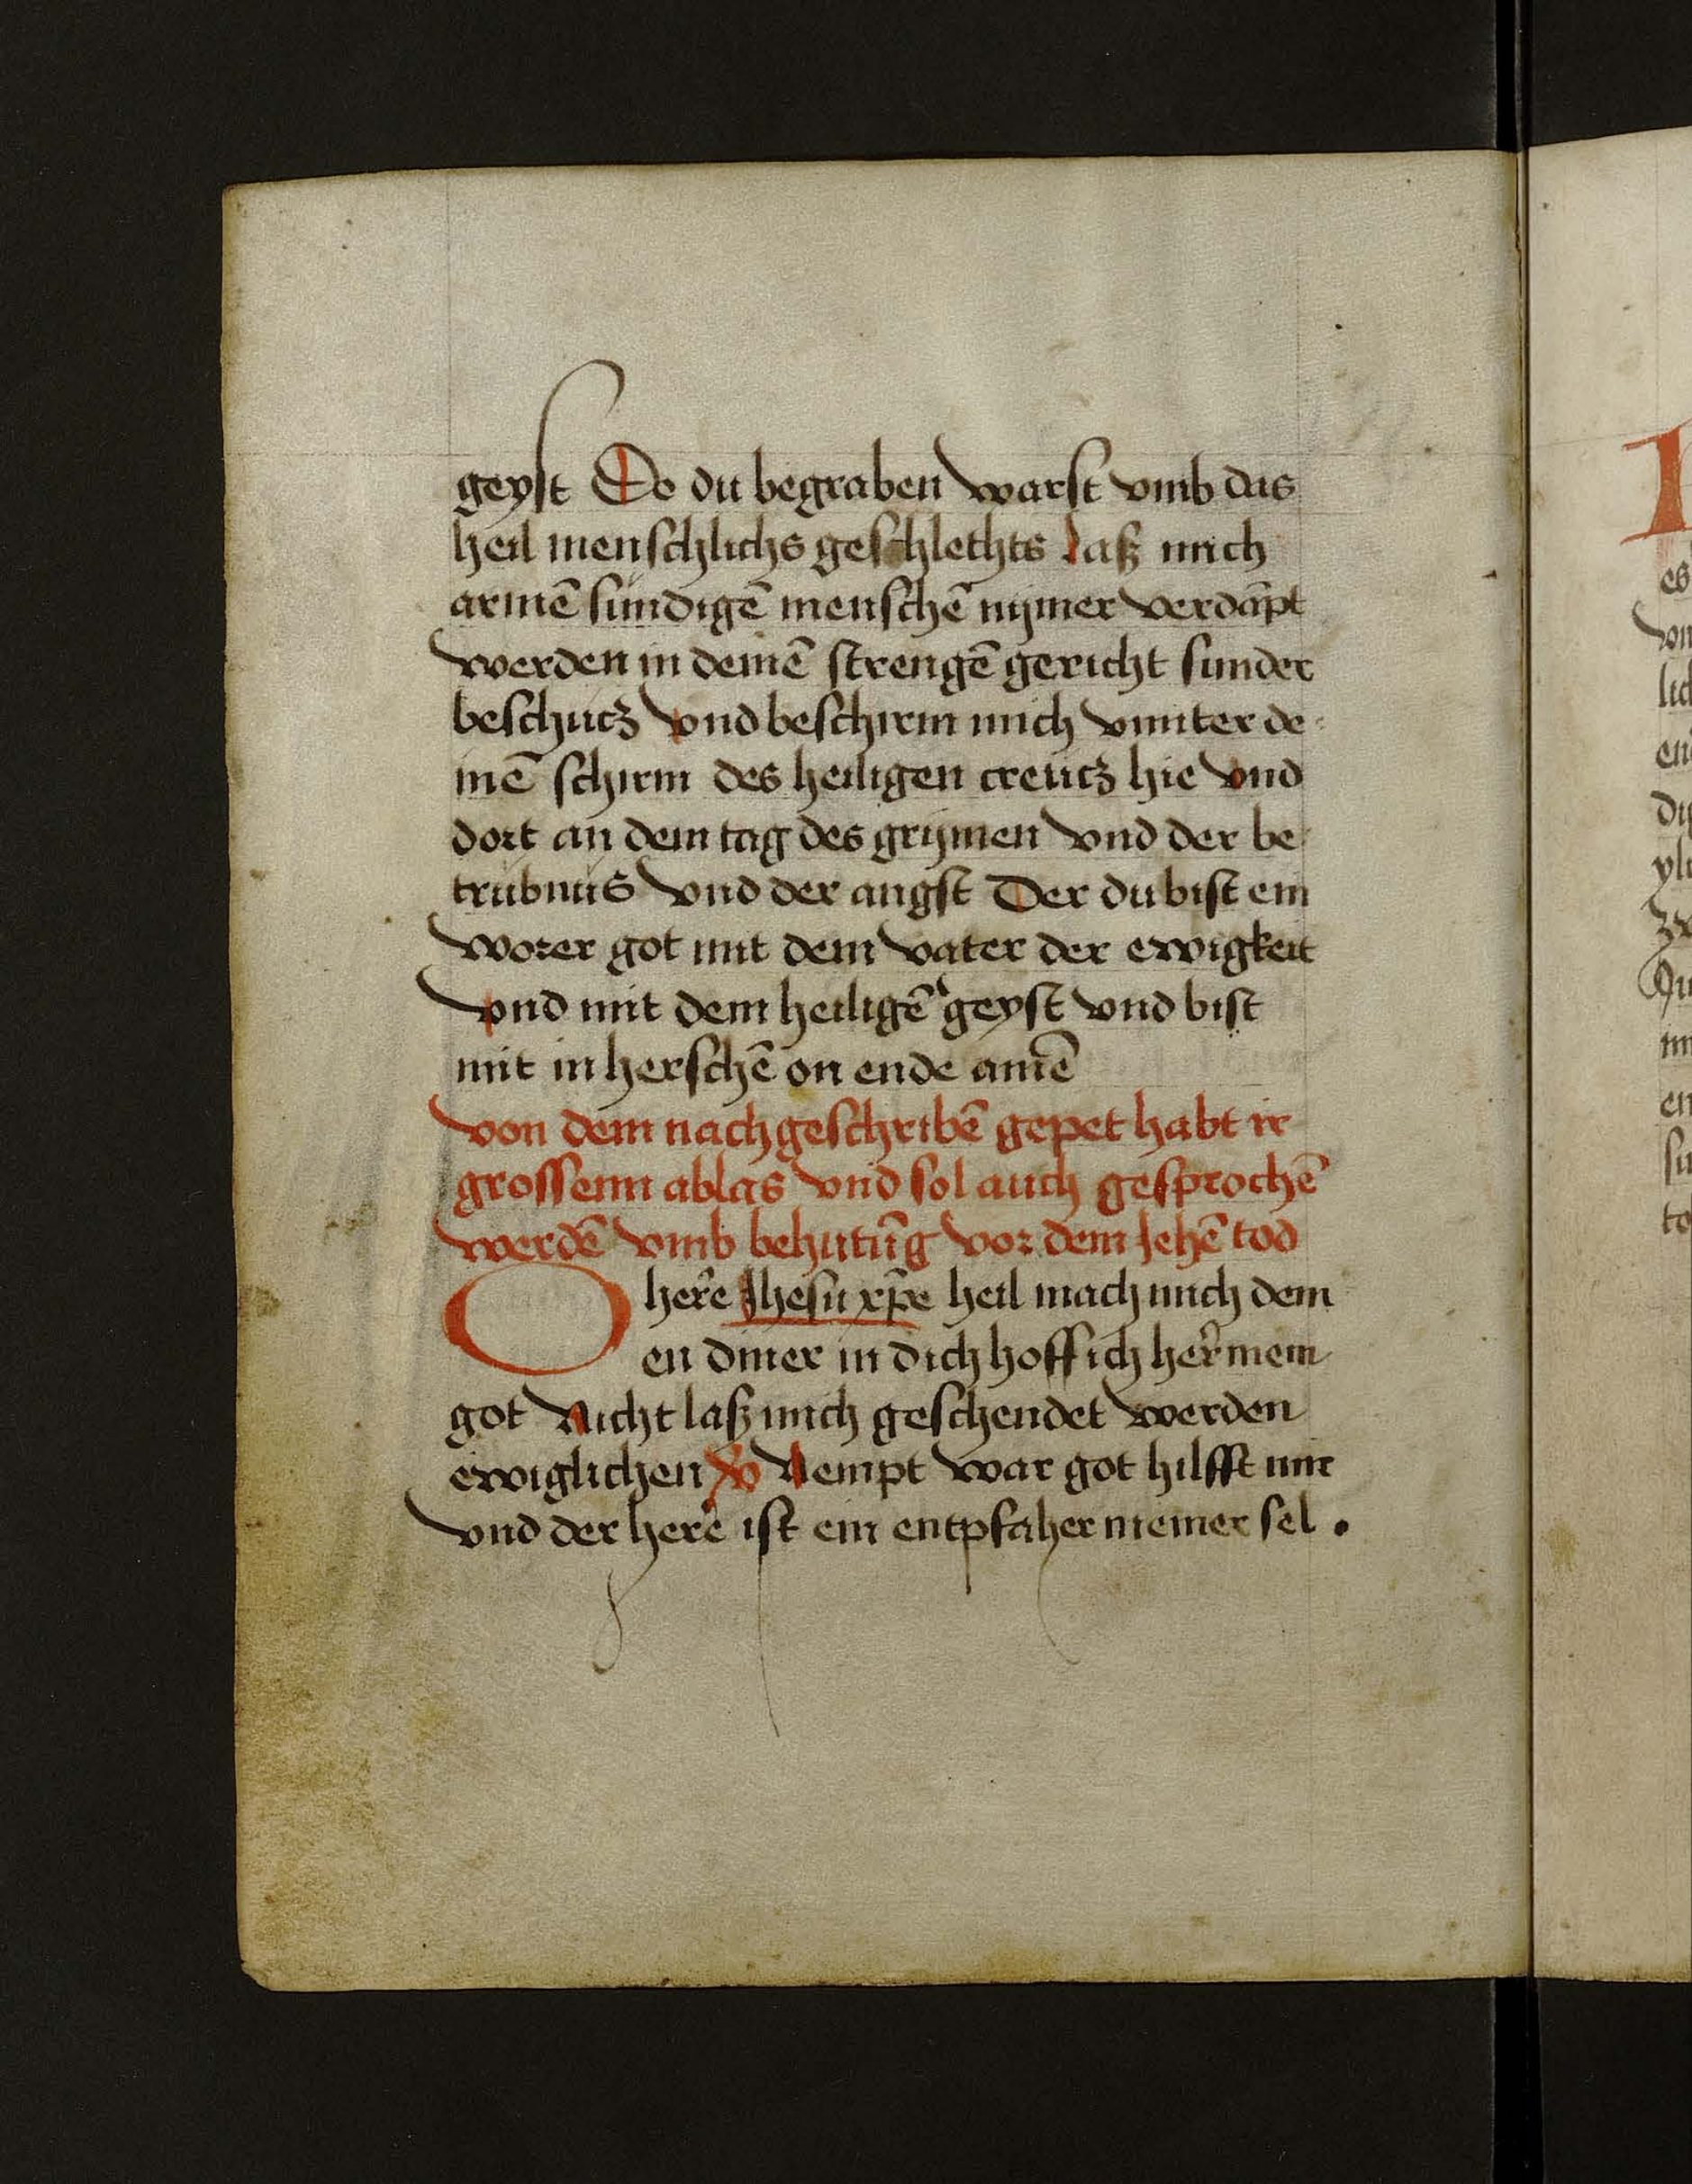 geyst Do du begraben warst vmb das
heil menschlichs geschlechts laß mich
armē sundigē menschē nymer verdāpt
werden in deinē strengē gericht sunder
beschutz vnd beschirm mich vnnter de
inē schirm des heiligen creutz hie vnd
dort an dem tag des grymen vnd der be
trubnus vnd der angst Der du bist ein
worer got mit dem vater der ewigkeit
vnd mit dem heiligē geyst vnd bist
mit in herschē on ende amē
von dem nachgeschribē gepet habt ir
grossenn ablas vnd sol auch gesprochē
werdē vmb behutūg vor dem Jehē tod
O herre Jhesu xp̄e heil mach mich dein
en diner in dich hoff ich her mein
got Nicht laß mich geschendet werden
ewiglichen Nempt war got hilfft mir
vnd der here ist ein entpfaher meiner sel .